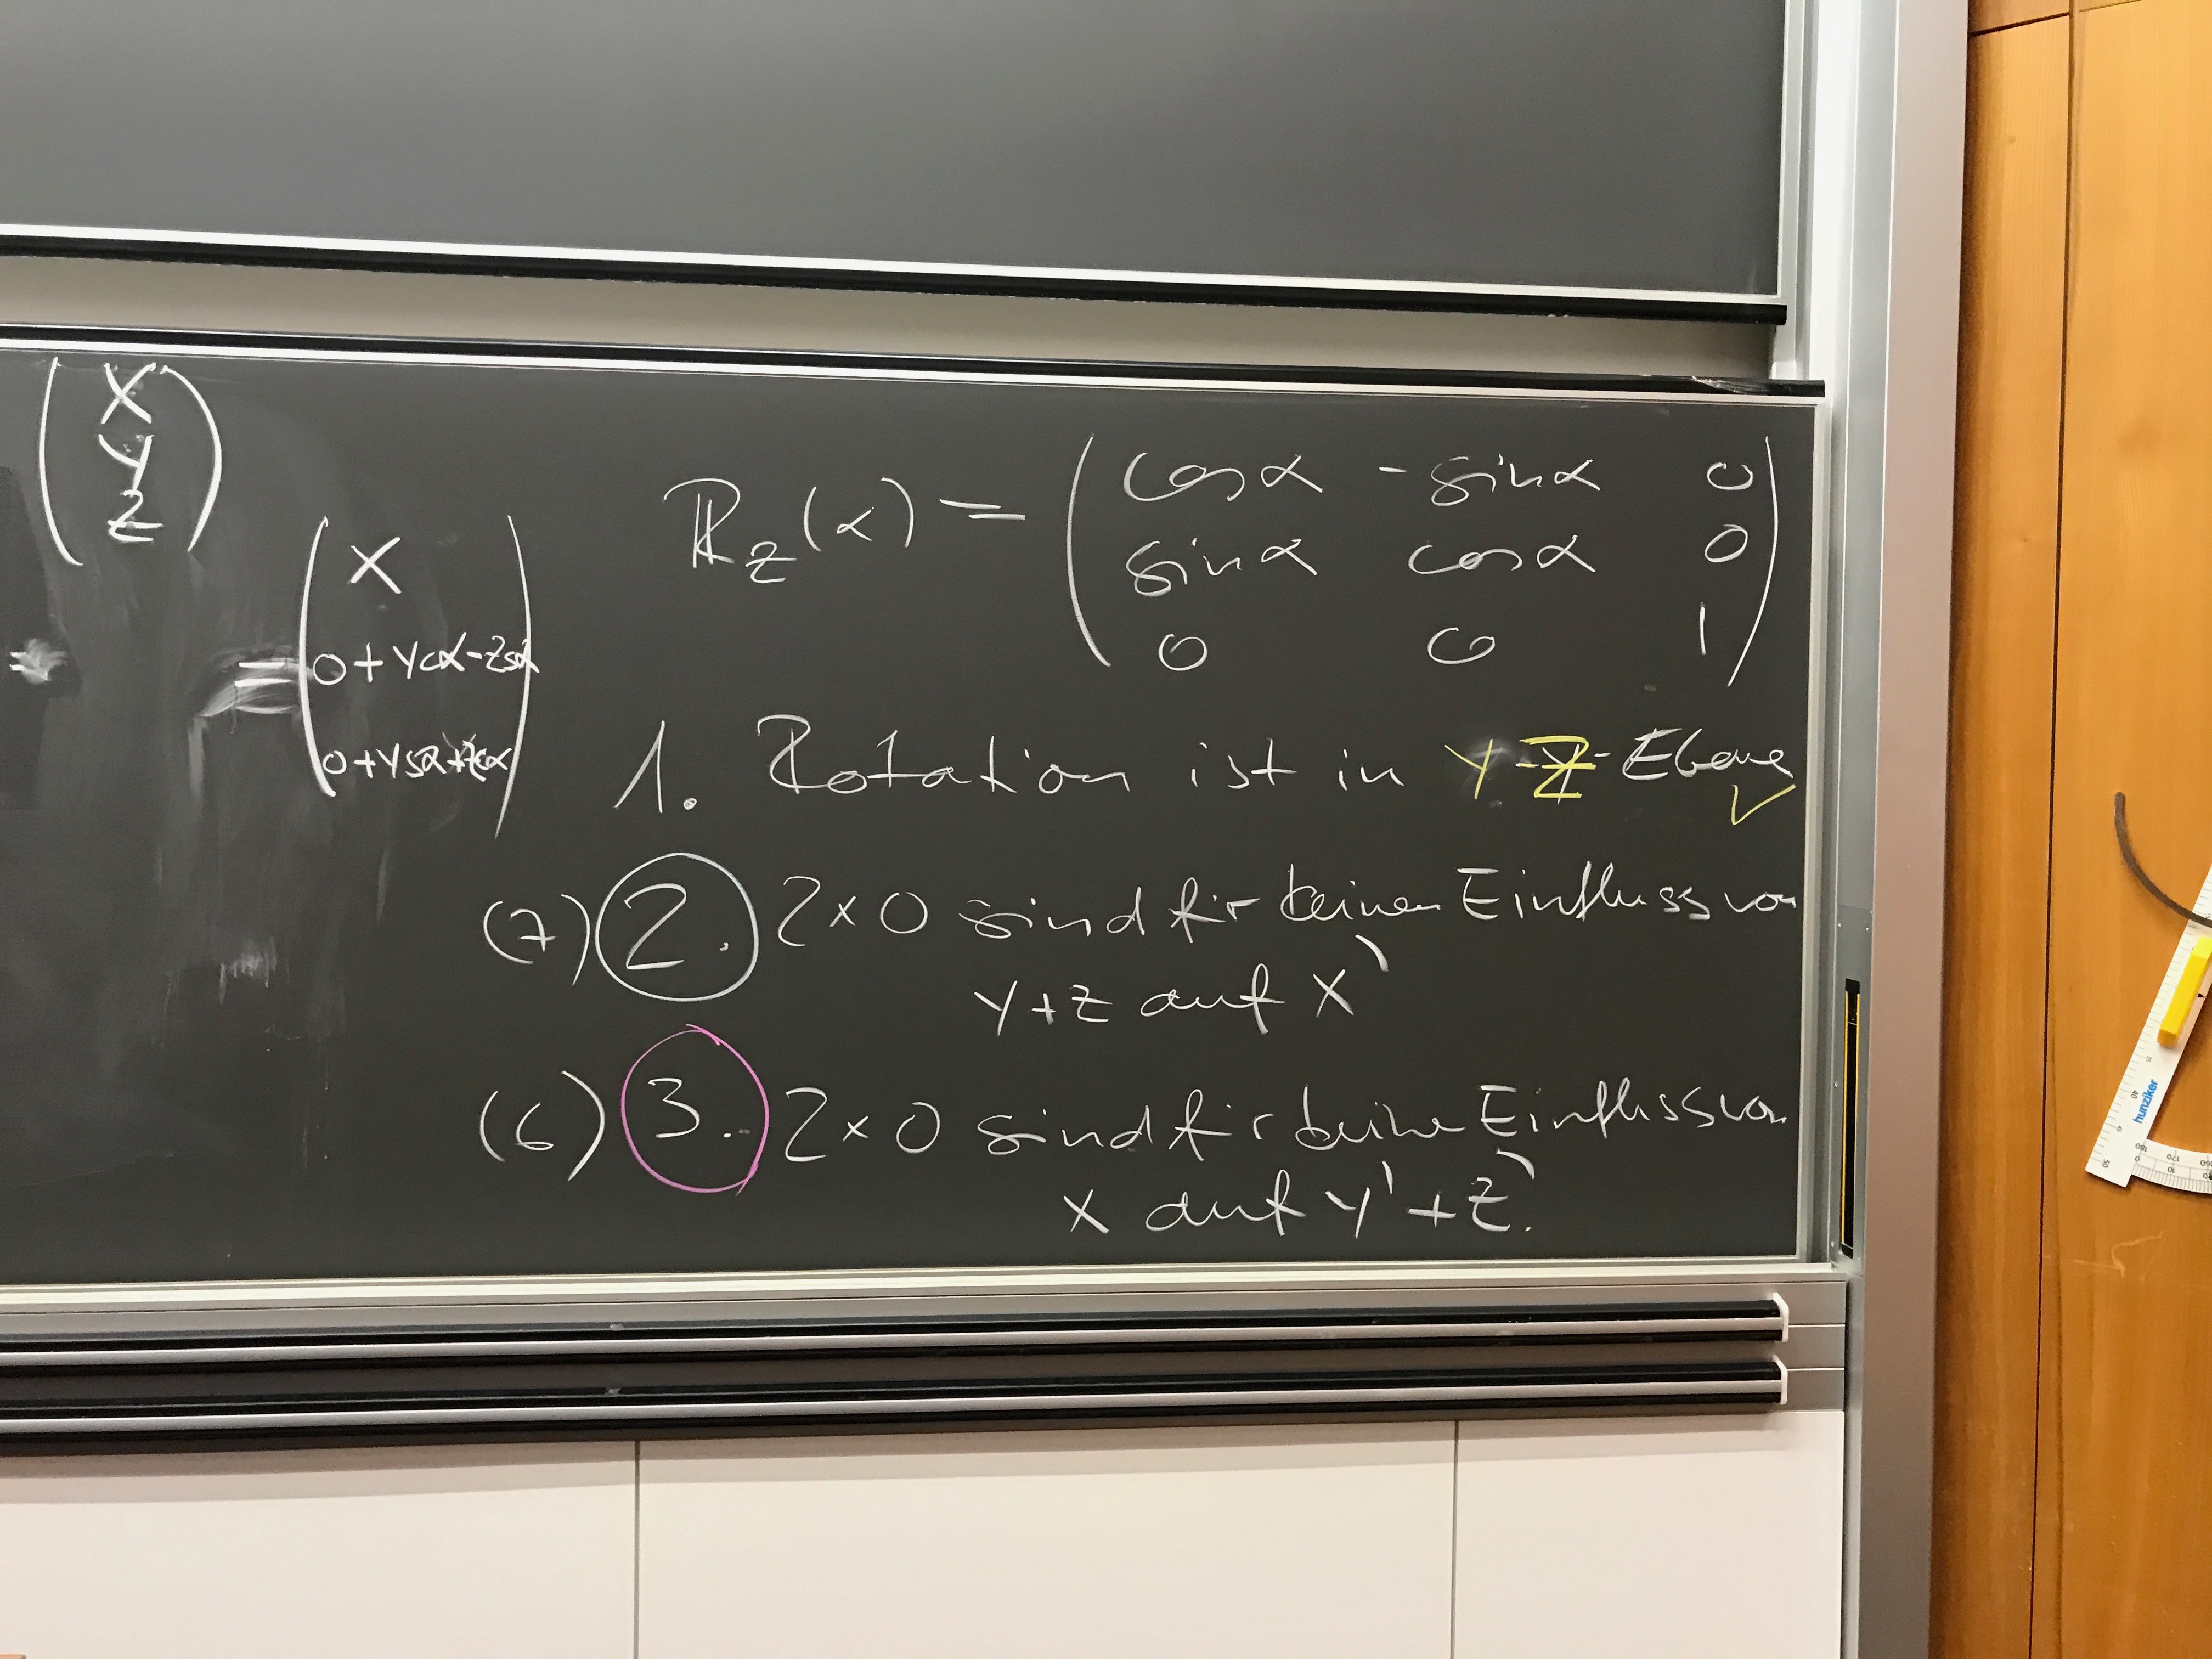 (X
Y
Z)
= = (X
0+Ycα-Zsα
0+Ysα+Zcα)
R_Z(α) = (cosα -sinα 0
sinα cosα 0
0 0 1)
1. Rotation ist in Y-Z-Ebene ✓
(7) 2. 2×0 sind für keinen Einfluss von
Y+Z auf X'
(6) 3. 2×0 sind für keine Einfluss von
X auf Y'+Z'.
hunziker
40
50
180 170 160
0 10